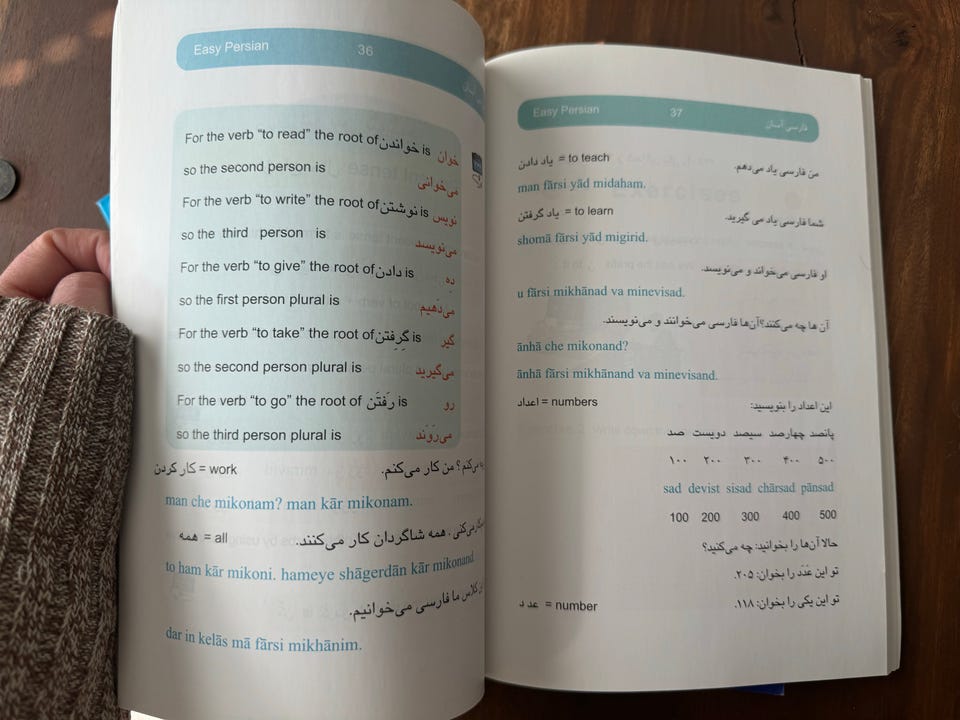 Easy Persian 36
For the verb "to read" the root of خواندن is خوان
so the second person is می‌خوانی
For the verb "to write" the root of نوشتن is نویس
so the third person is می‌نویسد
For the verb "to give" the root of دادن is ده
so the first person plural is می‌دهیم
For the verb "to take" the root of گِرِفتن is گیر
so the second person plural is می‌گیرید
For the verb "to go" the root of رَفتَن is رو
so the third person plural is می‌رَوَند
کار کردن = work می‌کنم؟ من کار می‌کنم.
man che mikonam? man kār mikonam.
همه = all می‌کنی. همه شاگردان کار می‌کنند.
to ham kār mikoni. hameye shāgerdān kār mikonand
کلاس ما فارسی می‌خوانیم.
dar in kelās mā fārsi mikhānim.
Easy Persian 37 فارسی آسان
یاد دادن = to teach من فارسی یاد می‌دهم.
man fārsi yād midaham.
یاد گرفتن = to learn شما فارسی یاد می گیرید.
shomā fārsi yād migirid.
او فارسی می‌خواند و می‌نویسد.
u fārsi mikhānad va minevisad.
آن ها چه می‌کنند؟ آن‌ها فارسی می‌خوانند و می‌نویسند.
ānhā che mikonand?
ānhā fārsi mikhānand va minevisand.
اعداد = numbers این اعداد را بنویسید:
صد دویست سیصد چهارصد پانصد
۱۰۰ ۲۰۰ ۳۰۰ ۴۰۰ ۵۰۰
sad devist sisad chārsad pānsad
100 200 300 400 500
حالا آن‌ها را بخوانید: چه می‌کنید؟
تو این عَدَد را بخوان: ۲۰۵.
عدد = number تو این یکی را بخوان: ۱۱۸.